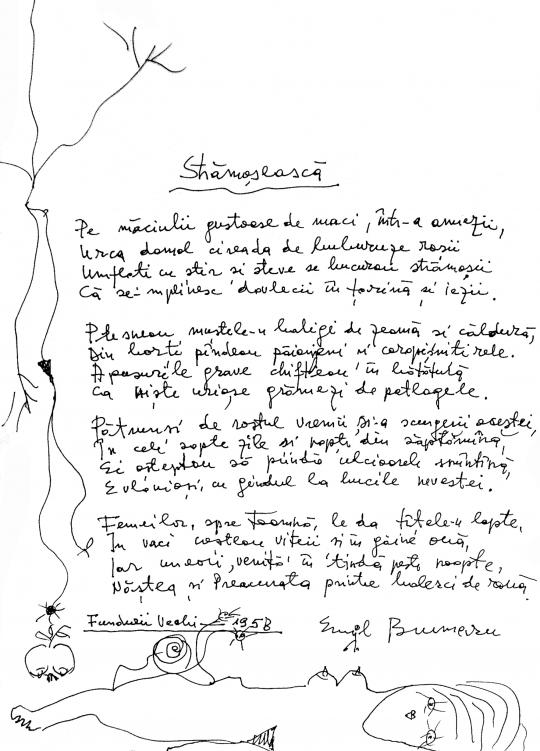 Strămoșească
Pe măciulii gustoase de maci, într-a amiezii,
Urca domol cireada de buburuze roșii
Umflați cu știr și steve se bucurau strămoșii
Că se-mplinesc dovlecii în țarină și iezii.
Plesneau mustele-n baligi de zeamă și căldură,
Din borți pîndeau păianjeni și coropișnițele.
Apusurile grave chifteau în bătătură
Ca niște uriașe grămezi de pătlăgele.
Pătrunși de rostul vremii și-a scurgerii acestei,
În cele șapte zile și nopți din săptămînă,
Ei așteptau să prindă ulcioarele smîntînă,
Evlavioși, cu gîndul la bucile nevestei.
Femeilor, spre toamnă, le da țîțele-n lapte,
În vaci creșteau viței și în găină ouă,
Iar uneori, veniță în tindă peste noapte,
Năștea și Preacurata printre bulezi de rouă.
Fundurii Vechi - 1958
Emil Brumaru